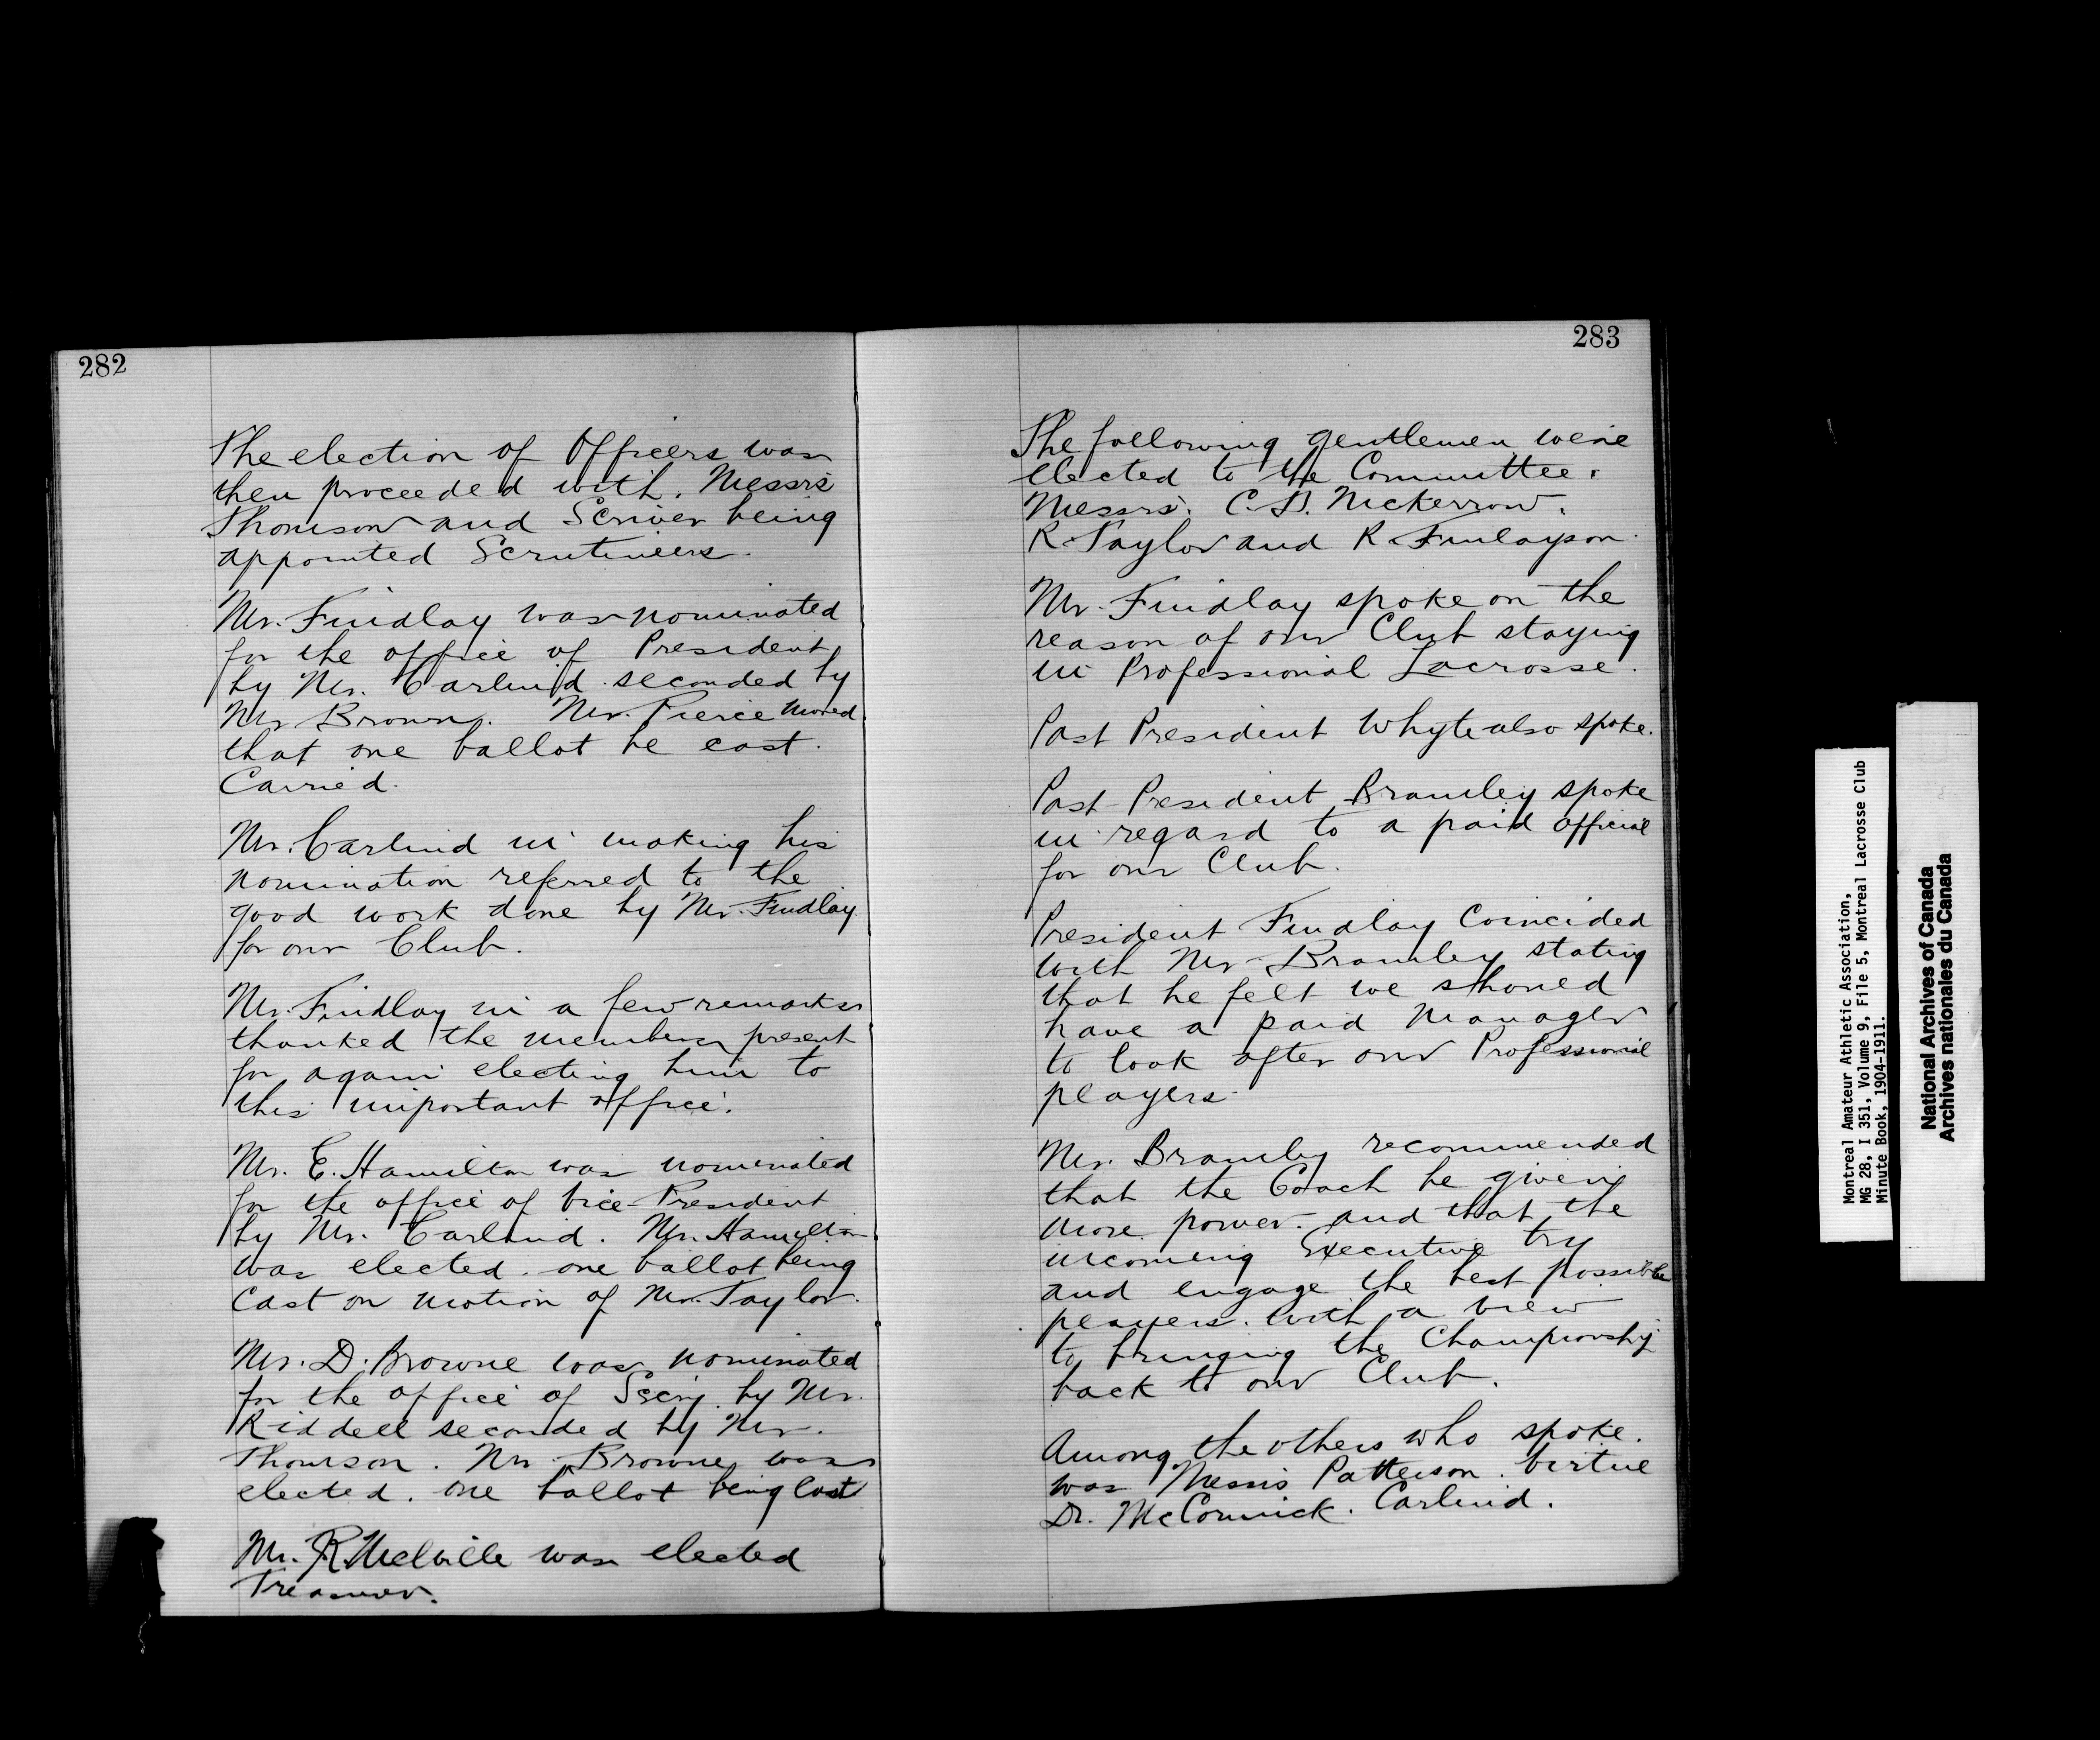 282
The election of Officers was
then proceeded with. Messrs
Thomson and Scriver being
appointed Scrutineers.
Mr. Findlay was nominated
for the office of President
by Mr. Carlind. seconded by
Mr Brown. Mr. Pierce moved
that one ballot be cast.
Carried.
Mr. Carlind in making his
nomination referred to the
good work done by Mr. Findlay
for our Club.
Mr. Findlay in a few remarks
thanked the members present
for again electing him to
this important office.
Mr. E. Hamilton was nominated
for the office of Vice-President
by Mr. Carlind. Mr. Hamilton
was elected. one ballot being
cast on motion of Mr. Taylor.
Mr. D. Browne was nominated
for the office of Secy. by Mr.
Riddell seconded by Mr.
Thomson. Mr. Browne was
elected. one ballot being cast
Mr. R. Melville was elected
Treasurer.
283
The following gentlemen were
elected to the Committee.
Messrs. C. D. Nickerrow.
R. Taylor and R. Finlayson.
Mr. Findlay spoke on the
reason of our Club staying
in Professional Lacrosse.
Past President Whyte also spoke.
Past President Bramley spoke
in regard to a paid official
for our Club.
President Findlay Coincided
with Mr. Bramley stating
that he felt we should
have a paid Manager
to look after our Professional
players.
Mr. Bramley recommended
that the Coach be given
more power. and that the
incoming Executive try
and engage the best possible
players. with a view
to bringing the Championship
back to our Club.
Among the others who spoke.
was Messrs Patterson. Virtue
Dr. McCormick. Carlind.
Montreal Amateur Athletic Association,
MG 28, I 351, Volume 9, File 5, Montreal Lacrosse Club
Minute Book, 1904-1911.
National Archives of Canada
Archives nationales du Canada